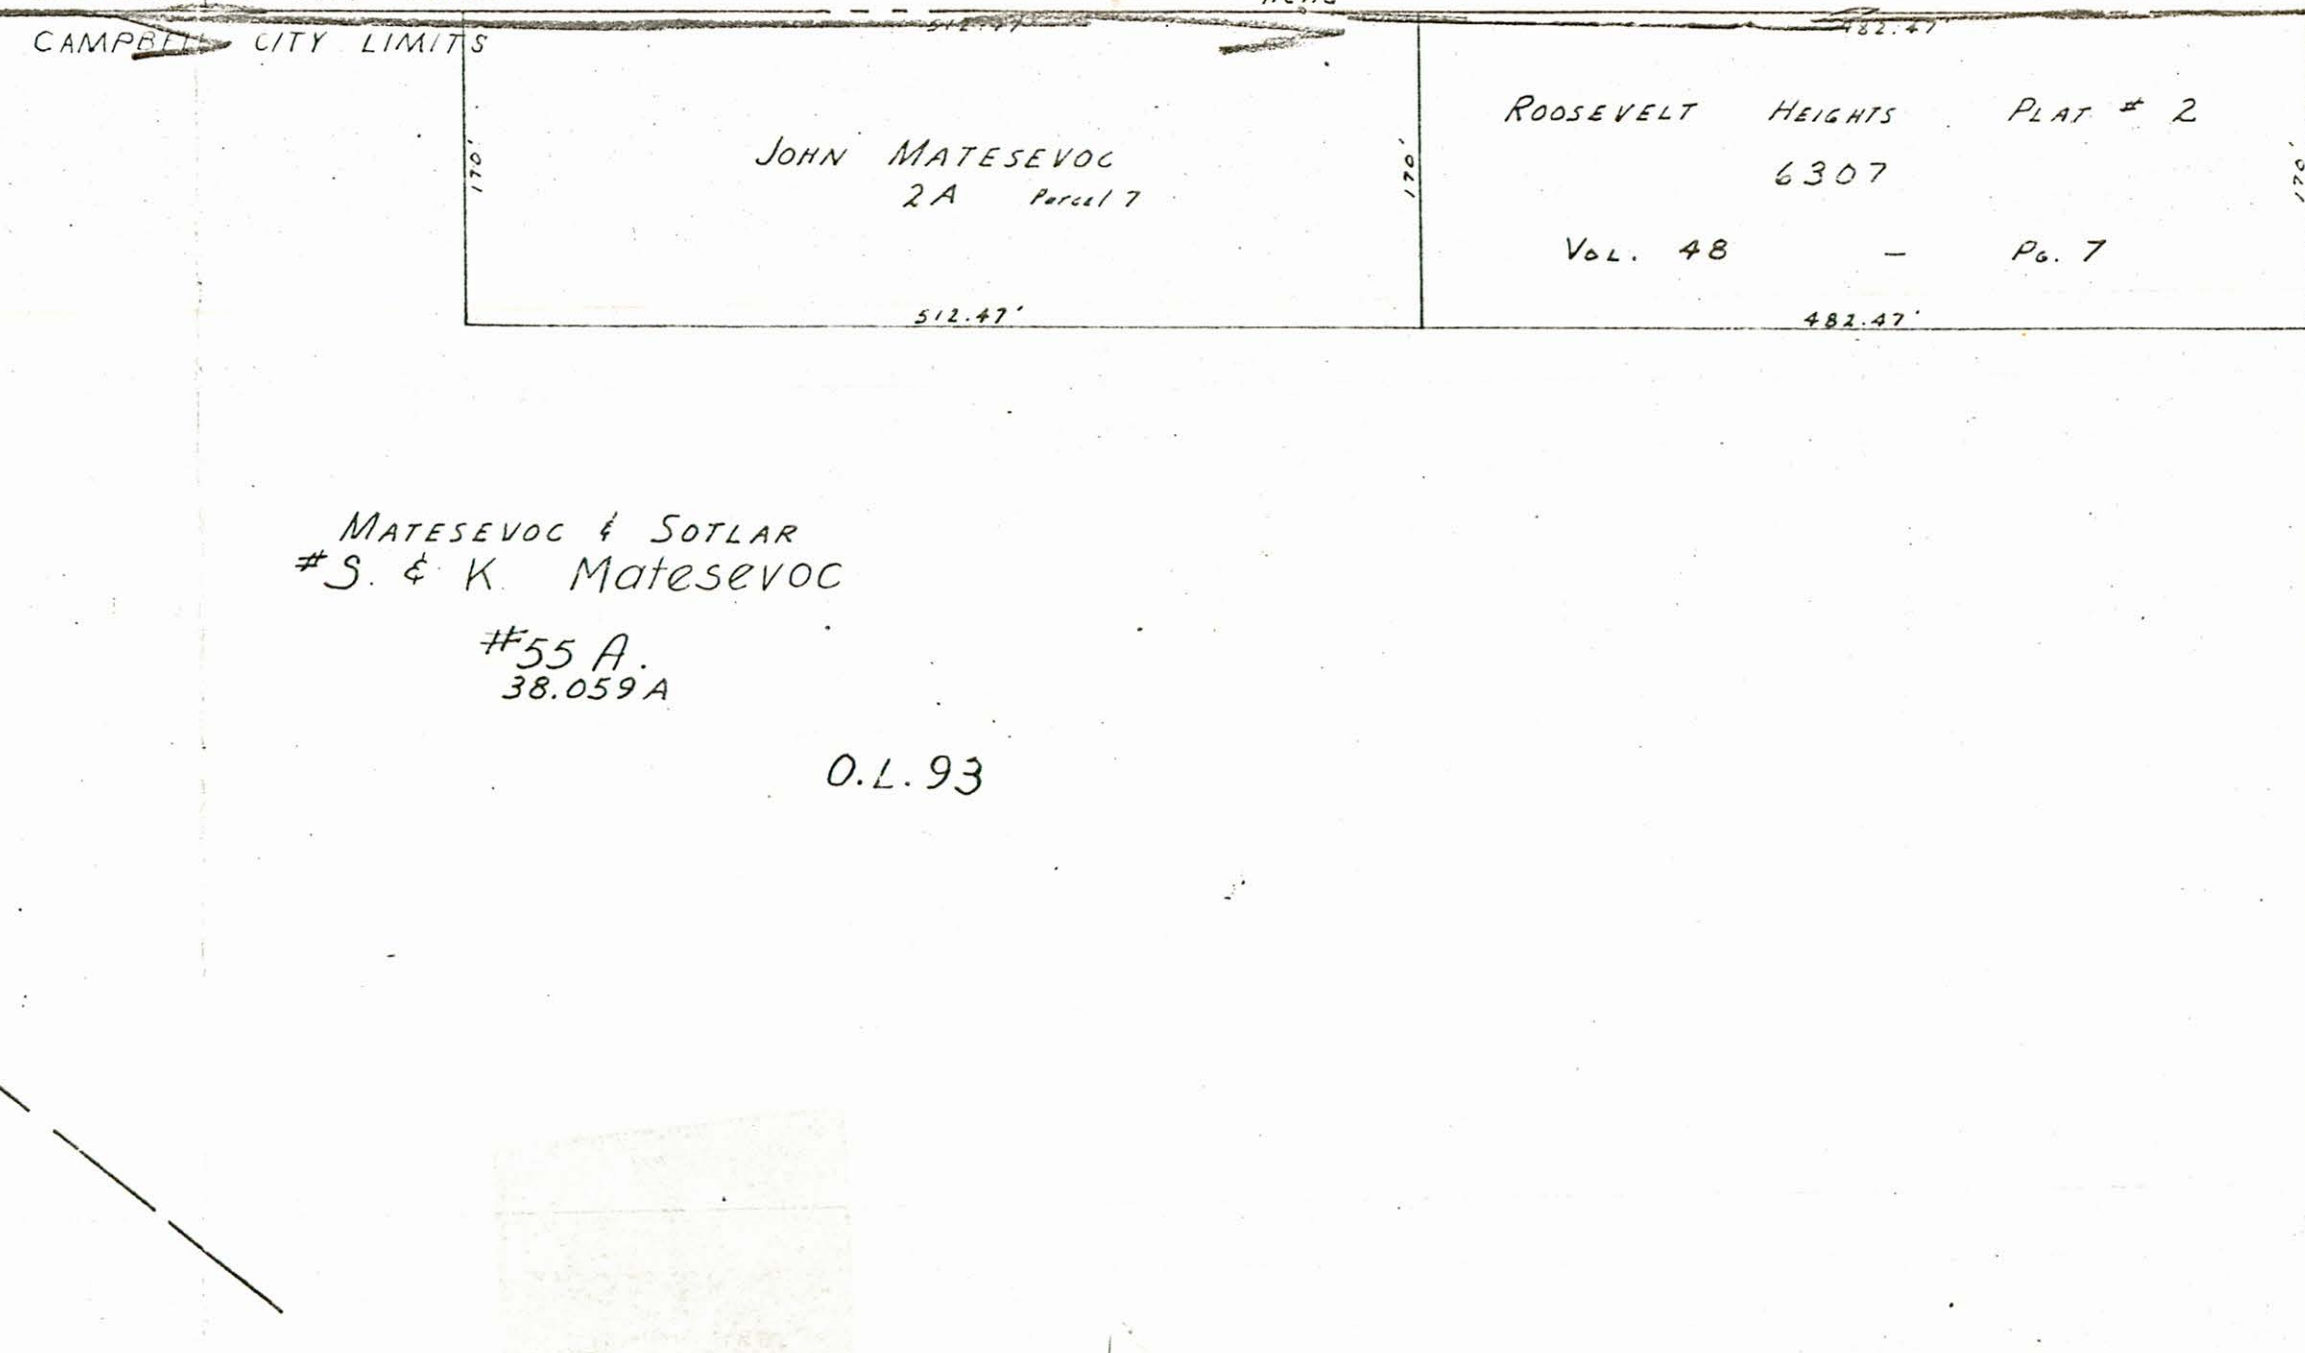 CAMPBELL CITY LIMITS
482.47'
170'
JOHN MATESEVOC
2A Parcel 7
170'
512.47'
ROOSEVELT HEIGHTS PLAT # 2
6307
VOL. 48 - PG. 7
170'
482.47'
MATESEVOC & SOTLAR
#S. & K. Matesevoc
#55 A.
38.059 A
O.L. 93